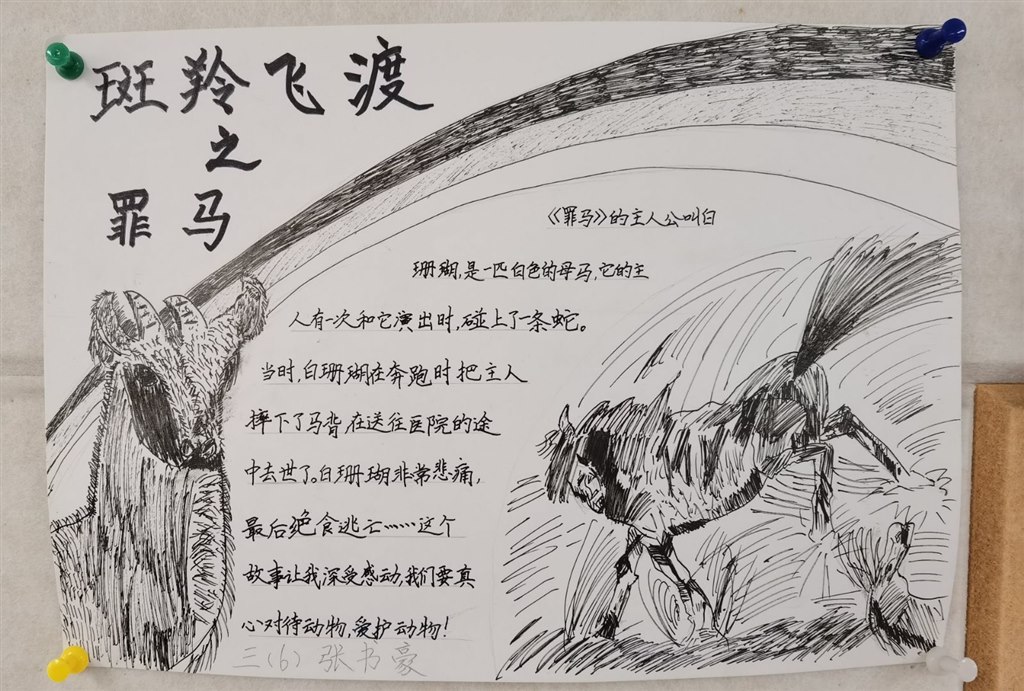 斑羚飞渡
之
罪马
《罪马》的主人公叫白
珊瑚,是一匹白色的母马,它的主
人有一次和它演出时,碰上了一条蛇。
当时,白珊瑚在奔跑时把主人
摔下了马背,在送往医院的途
中去世了。白珊瑚非常悲痛,
最后绝食逃亡……这个
故事让我深受感动,我们要真
心对待动物,爱护动物!
三(6) 张书豪